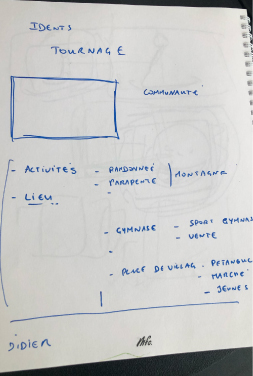 IDENTS
TOURNAGE
COMMUNAUTÉ
- ACTIVITÉS - RANDONNÉE
- PARAPENTE | MONTAGNE
- LIEU -
- GYMNASE - SPORT GYMNAS
- VENTE
-
- PLACE DE VILLAG - PETANQUE
- MARCHÉ
- JEUNES
DIDIER